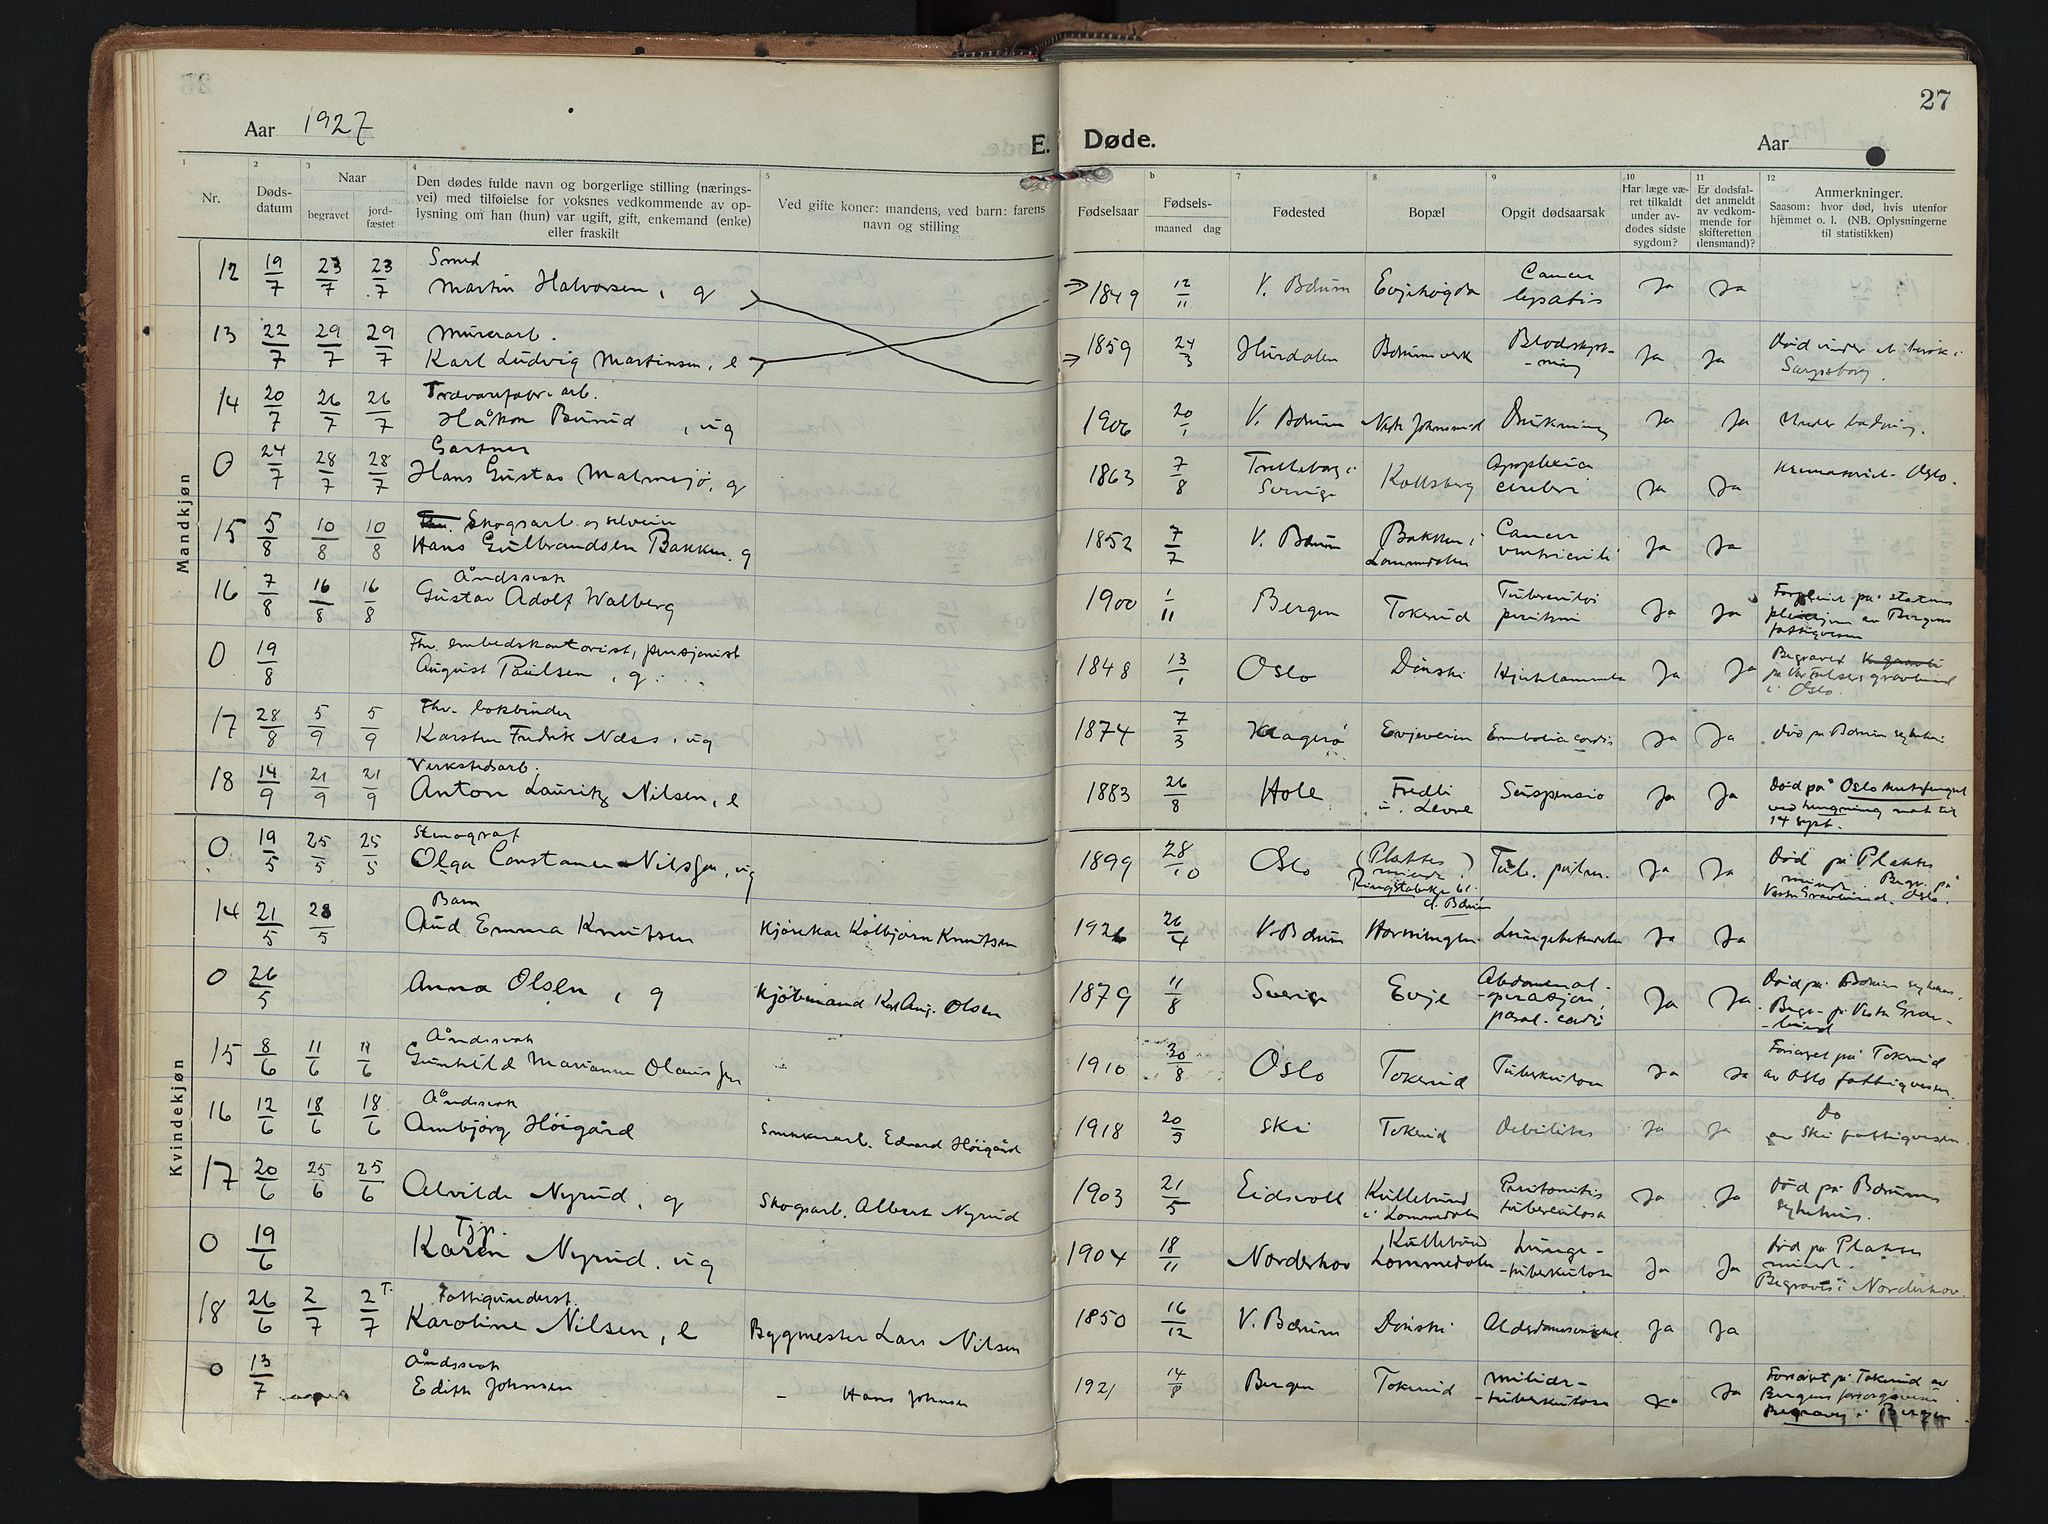 Aar 1927
E. Døde.
Aar
27
1
2
3
4
5
b
7
8
9
10
11
12
Nr.
Døds-
datum
Naar
begravet
jord-
fæstet
Den dødes fulde navn og borgerlige stilling (nærings-
vei) med tilføielse for voksnes vedkommende av op-
lysning om han (hun) var ugift, gift, enkemand (enke)
eller fraskilt
Ved gifte koner: mandens, ved barn: farens
navn og stilling
Fødselsaar
Fødsels-
maaned dag
Fødested
Bopæl
Opgit dødsaarsak
Har læge væ-
ret tilkaldt
under av-
dødes sidste
sygdom?
Er dødsfal-
det anmeldt
av vedkom-
mende for
skifteretten
(lensmand)?
Anmerkninger.
Saasom: hvor død, hvis utenfor
hjemmet o. l. (NB. Oplysningerne
til statistikken)
Mandkjøn
12 19/7 23/7 23/7 Smed
Martin Halvorsen, g 1849 12/11 V. Bærum Cancer Ja Ja
13 22/7 29/7 29/7 Murerarb.
Karl Ludvig Martinsen, e 1859 24/3 Hurdalen Bærumsverk Ja Ja
Sarpsborg.
14 20/7 26/7 26/7 Trævarefabr. arb.
Håkon Burud, ug 1906 20/1 V. Bærum Drukning Ja Ja Under badning.
0 24/7 28/7 28/7 Gartner
Hans Gustav Malmsjø, g 1863 7/8 Trelleborg i
Sverige Kolsberg Apoplexia
cerebri Ja Ja Krematoriet Oslo.
15 5/8 10/8 10/8 Skogsarb. og selveier
Hans Gulbrandsen Bakken. g 1852 7/7 V. Bærum Bakken i
Lommedalen Cancer
ventriculi Ja Ja
16 7/8 16/8 16/8 Åndssvak
Gustav Adolf Walberg 1900 1/11 Bergen Tokerud Ja Ja av Bergens
fattigvesen
0 19/8 Fhv. embedskontorist, pensjonist
August Paulsen, g. 1848 13/1 Oslo Dønski Ja Ja Begravet
på Vår Frelsers gravlund
i Oslo.
17 28/8 5/9 5/9 Fhv. bokbinder
Karsten Fredrik Næss, ug 1874 7/3 Kragerø Evjeveien Embolia cordis Ja Ja død på Bærum sykehus
18 14/9 21/9 21/9 Verkstedsarb.
Anton Lauritz Nilsen, e 1883 26/8 Hole Suspensio Ja Ja Død på Oslo
ved hengning natt til
14 sept.
Kvindekjøn
0 19/5 25/5 25/5 Stenograf
Olga Constance Nilssen, ug 1899 28/10 Oslo (Plattes
minde) Tub. pulm. Ja Ja Død på Plattes
minde. Begr. på
Vestre Gravlund. Oslo.
14 21/5 28/5 Barn
Aud Emma Knutsen Kjørekar Kolbjørn Knutsen 1926 26/4 V. Bærum Lungebetendelse Ja Ja
0 26/5 Anna Olsen, g Kjøbmand Karl Aug. Olsen 1879 11/8 Sverige Evje Abdominal-
operasjon,
paral. cordis Ja Ja Død på Bærum sykehus.
Begr. på Vestre Grav-
lund
15 8/6 11/6 11/6 Åndssvak
Gunhild Marianne Olaussen 1910 30/8 Oslo Tokerud Tuberkulose Ja Ja
av Oslo fattigvesen.
16 12/6 18/6 18/6 Åndssvak
Arnbjørg Høigård Edvard Høigård 1918 20/9 Ski Tokerud Debilitas Ja Ja Do
av Ski fattigvesen.
17 20/6 25/6 25/6 Alvilde Nyrud, g Skogsarb. Albert Nyrud 1903 21/5 Eidsvoll Kullebund
i Lommedalen Peritonitis
tuberculosa Ja Ja Død på Bærums
sykehus.
0 19/6 Tjp.
Karen Nyrud. ug 1904 18/11 Norderhov Kullebund
Lommedalen Lunge-
tuberkulose Ja Ja død på Plattes
minde.
Begravet i Norderhov.
18 26/6 2/7 2/7 T. Fattigunderst.
Karoline Nilsen, e Bygmester Lars Nilsen 1850 16/12 V. Bærum Dønski Ja Ja
0 13/7 Åndssvak
Edith Johnsen - Hans Johnsen 1921 14/8 Bergen Tokerud miliær-
tuberkulose Ja Ja på Tokerud av
Bergens forsorgsvesen
Begravet i Bergen